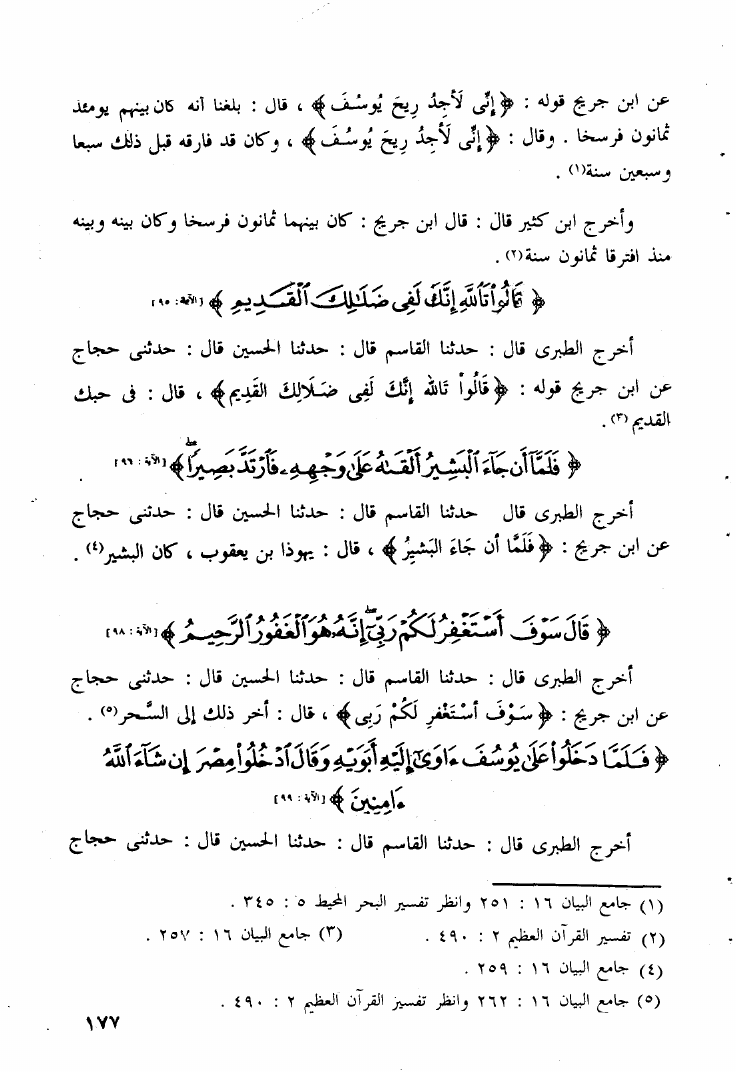 عن ابن جريج قوله : ﴿ إِنِّى لَأَجِدُ رِيحَ يُوسُفَ ﴾ ، قال : بلغنا أنه كان بينهم يومئذ
ثمانون فرسخا . وقال : ﴿ إِنِّى لَأَجِدُ رِيحَ يُوسُفَ ﴾ ، وكان قد فارقه قبل ذلك سبعا
وسبعين سنة(١) .
وأخرج ابن كثير قال : قال ابن جريج : كان بينهما ثمانون فرسخا وكان بينه وبينه
منذ افترقا ثمانون سنة(٢) .
﴿ قَالُوا۟ تَٱللَّهِ إِنَّكَ لَفِى ضَلَٰلِكَ ٱلْقَدِيمِ ﴾ [الآية : ٩٥]
أخرج الطبرى قال : حدثنا القاسم قال : حدثنا الحسين قال : حدثنى حجاج
عن ابن جريج قوله : ﴿ قَالُواْ تَالله إِنَّكَ لَفِى ضَلَالِكَ القَدِيم ﴾ ، قال : فى حبك
القديم(٣) .
﴿ فَلَمَّآ أَن جَآءَ ٱلْبَشِيرُ أَلْقَىٰهُ عَلَىٰ وَجْهِهِۦ فَٱرْتَدَّ بَصِيرًاۖ ﴾ [الآية : ٩٦]
أخرج الطبرى قال حدثنا القاسم قال : حدثنا الحسين قال : حدثنى حجاج
عن ابن جريج : ﴿ فَلَمَّا أن جَاءَ البَشيِرُ ﴾ ، قال : يهوذا بن يعقوب ، كان البشير(٤) .
﴿ قَالَ سَوْفَ أَسْتَغْفِرُ لَكُمْ رَبِّىٓۖ إِنَّهُۥ هُوَ ٱلْغَفُورُ ٱلرَّحِيمُ ﴾ [الآية : ٩٨]
أخرج الطبرى قال : حدثنا القاسم قال : حدثنا الحسين قال : حدثنى حجاج
عن ابن جريج : ﴿ سَوْفَ أسْتَغْفرِ لَكُمْ رَبى ﴾ ، قال : أخر ذلك إلى السَّحر(٥) .
﴿ فَلَمَّا دَخَلُوا۟ عَلَىٰ يُوسُفَ ءَاوَىٰٓ إِلَيْهِ أَبَوَيْهِ وَقَالَ ٱدْخُلُوا۟ مِصْرَ إِن شَآءَ ٱللَّهُ
ءَامِنِينَ ﴾ [الآية : ٩٩]
أخرج الطبرى قال : حدثنا القاسم قال : حدثنا الحسين قال : حدثنى حجاج
(١) جامع البيان ١٦ : ٢٥١ وانظر تفسير البحر المحيط ٥ : ٣٤٥ .
(٢) تفسير القرآن العظيم ٢ : ٤٩٠ . (٣) جامع البيان ١٦ : ٢٥٧ .
(٤) جامع البيان ١٦ : ٢٥٩ .
(٥) جامع البيان ١٦ : ٢٦٢ وانظر تفسير القرآن العظيم ٢ : ٤٩٠ .
١٧٧